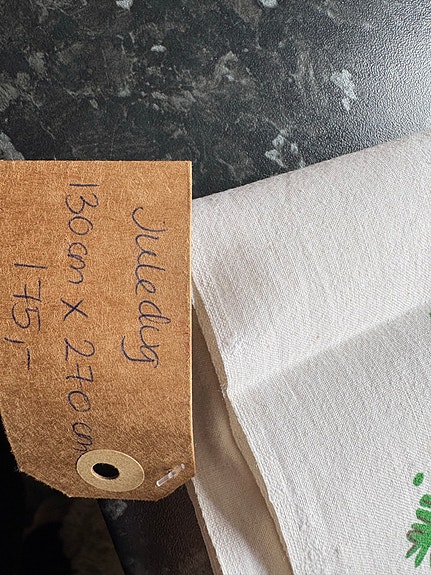 Juledug
130cm x 270cm
175,-